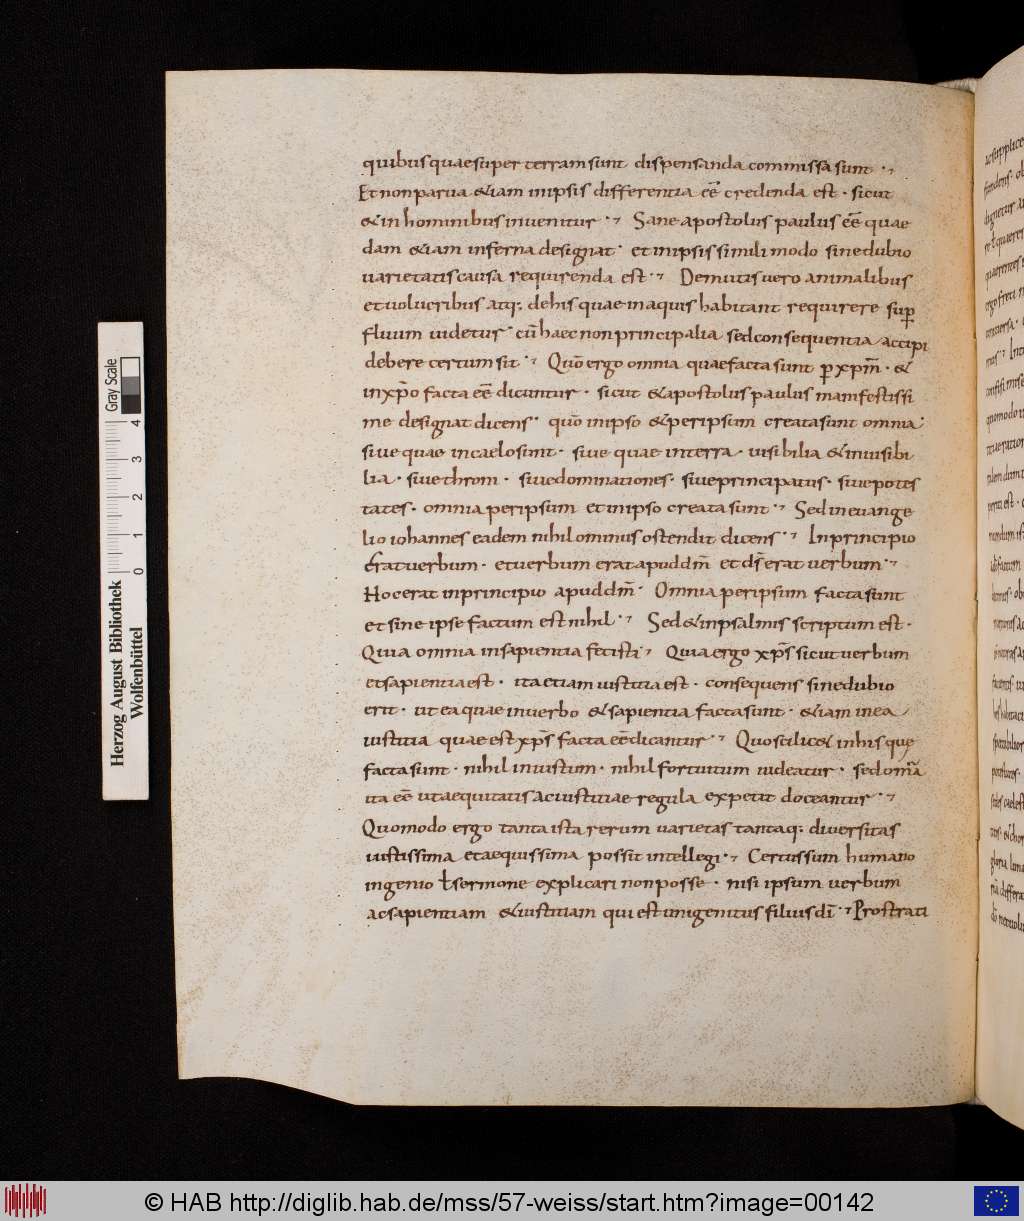 quibus quae super terram sunt dispensanda commissa sunt·
Et non parua &iam in ipsis differentia eē credenda est · sicut
& in hominibus inuenitur · Sane apostolus paulus eē quae
dam &iam inferna designat · et in ipsis simili modo sine dubio
uarietatis causa requirenda est · De mutis uero animalibus
et uolucribus atq; de his quae in aquis habitant requirere sup
fluum uidetur · cū haec non principalia sed consequentia accipi
debere certum sit · Quō ergo omnia quae facta sunt p xpm̄ · &
in xp̄o facta eē dicuntur · sicut & apostolus paulus manifestissi
me designat dicens · quō in ipso & per ipsum creata sunt omnia
siue quae in caelo sunt · siue quae in terra · uisibilia & inuisibi
lia · siue throni · siue dominationes · siue principatus · siue potes
tates · omnia per ipsum et in ipso creata sunt · Sed in euange
lio iohannes eadem nihilominus ostendit dicens · In principio
erat uerbum · et uerbum erat apud dm̄ et ds̄ erat uerbum ·
Hoc erat in principio apud dm̄ · Omnia per ipsum facta sunt
et sine ipse factum est nihil · Sed & in psalmis scriptum est ·
Quia omnia in sapientia fecisti · Quia ergo xp̄s sicut uerbum
et sapientia est · ita etiam iustitia est · consequens sine dubio
erit · ut ea quae in uerbo & sapientia facta sunt · &iam in ea
iustitia quae est xp̄s facta eē dicantur · Quo scilic& in his quę
facta sunt · nihil iniustum · nihil fortuitum uideatur · sed omīa
ita eē ut aequitatis ac iustitiae regula expetit doceantur ·
Quomodo ergo tanta ista rerum uarietas tantaq; diuersitas
iustissima et aequissima possit intellegi · Certus sum humano
ingenio ł sermone explicari non posse · nisi ipsum uerbum
ac sapientiam & iustitiam qui est unigenitus filius dī · Prostrati
Gray Scale
4 3 2 1 0
Herzog August Bibliothek
Wolfenbüttel
© HAB http://diglib.hab.de/mss/57-weiss/start.htm?image=00142